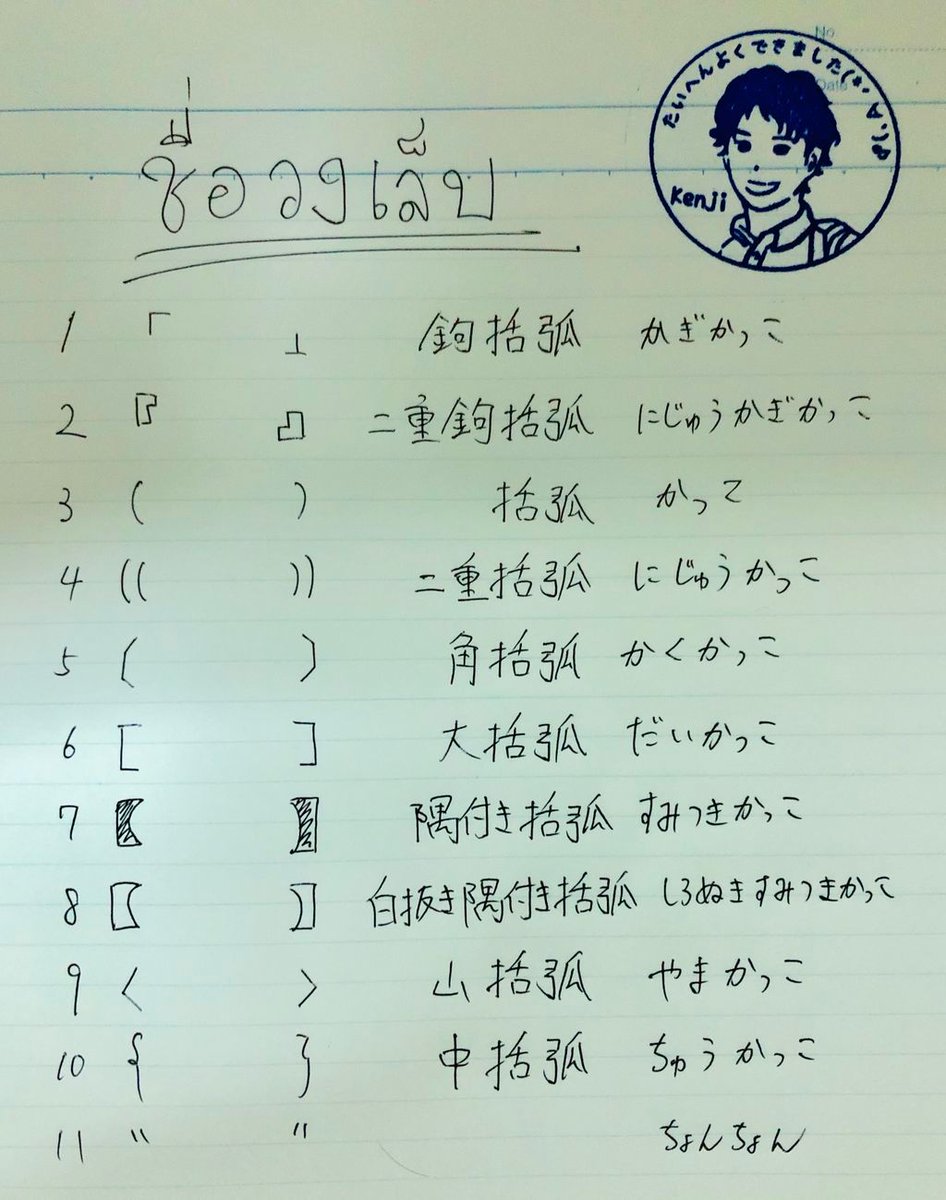 No
Date
たいへんよくできました(*・∀・)
Kenji
ชื่อวงเล็บ
1 「 」 鉤括弧 かぎかっこ
2 『 』 二重鉤括弧 にじゅうかぎかっこ
3 ( ) 括弧 かっこ
4 (( )) 二重括弧 にじゅうかっこ
5 〔 〕 角括弧 かくかっこ
6 [ ] 大括弧 だいかっこ
7 【 】 隅付き括弧 すみつきかっこ
8 〖 〗 白抜き隅付き括弧 しろぬきすみつきかっこ
9 〈 〉 山括弧 やまかっこ
10 { } 中括弧 ちゅうかっこ
11 " " ちょんちょん